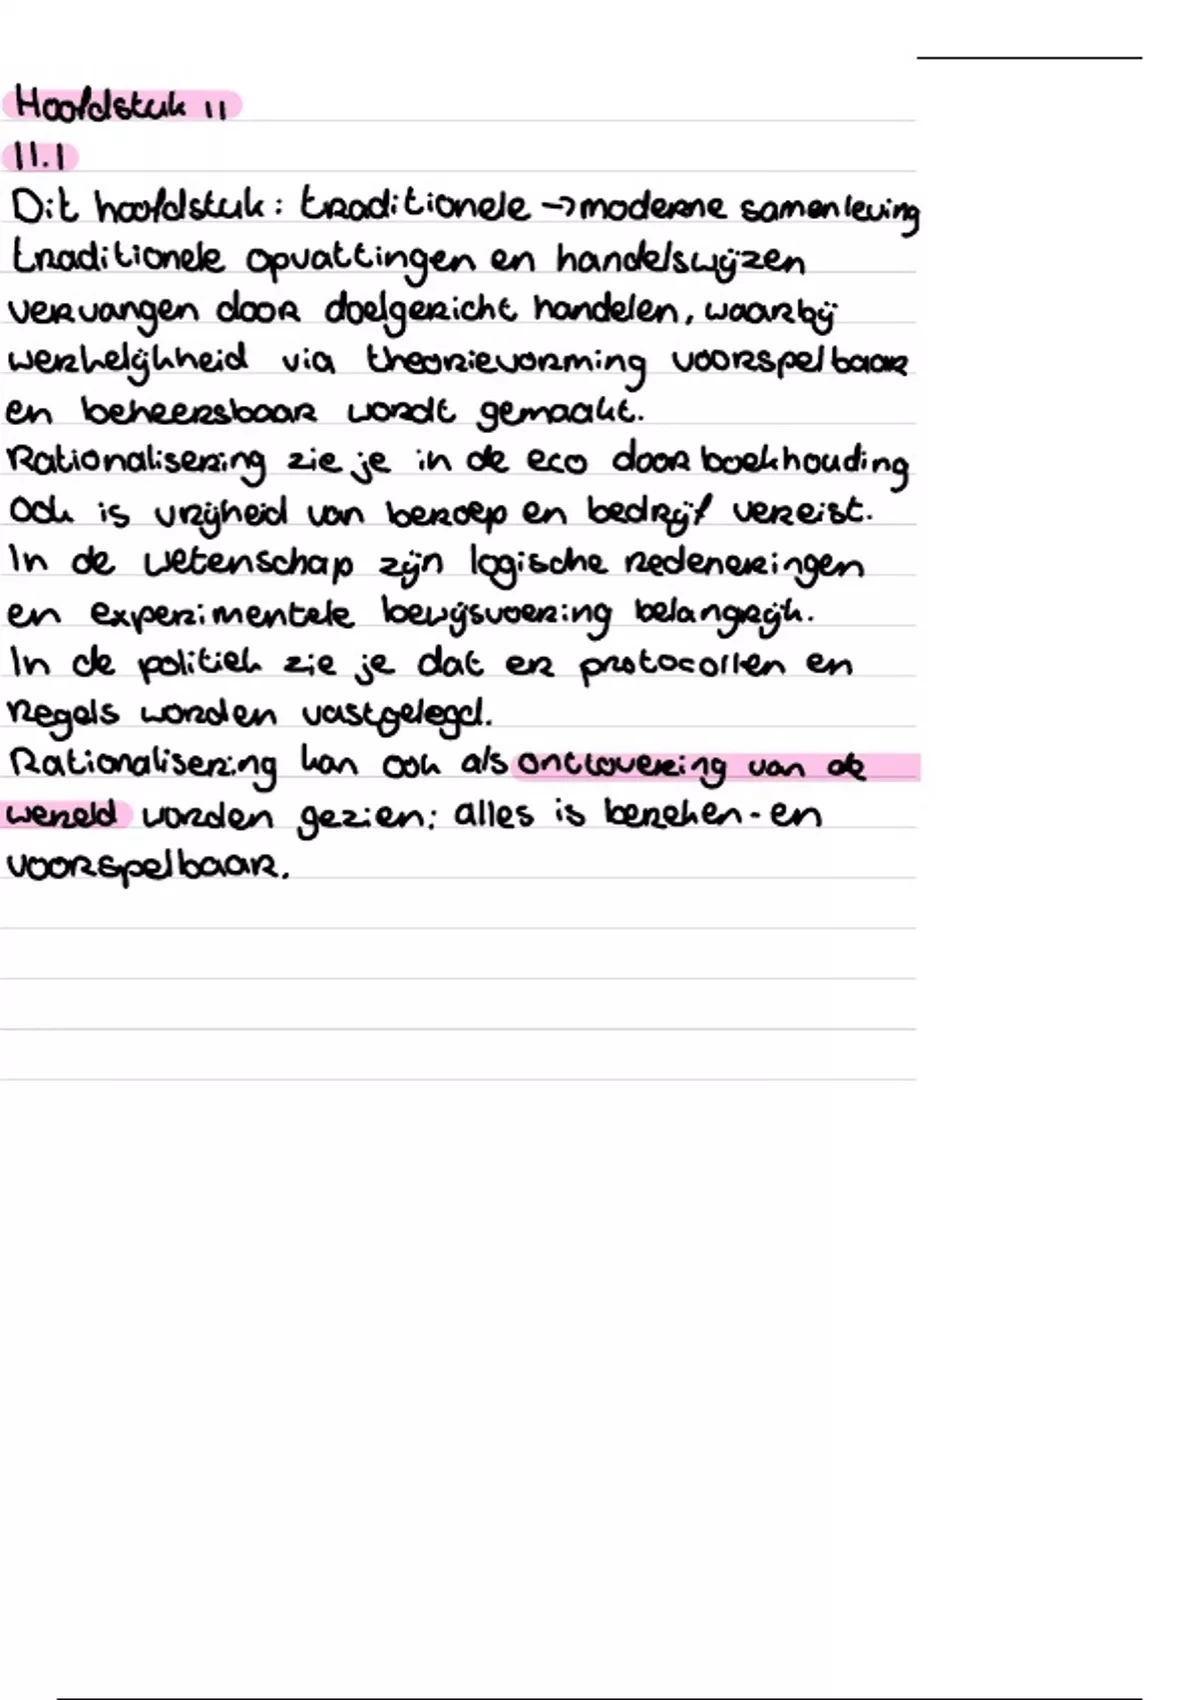 Hoofdstuk 11
11.1
Dit hoofdstuk: traditionele → moderne samenleving
traditionele opvattingen en handelswijzen
vervangen door doelgericht handelen, waarbij
werkelijkheid via theorievorming voorspelbaar
en beheersbaar wordt gemaakt.
Rationalisering zie je in de eco door boekhouding
Ook is vrijheid van beroep en bedrijf vereist.
In de wetenschap zijn logische redeneringen
en experimentele bewijsvoering belangrijk.
In de politiek zie je dat er protocollen en
Regels worden vastgelegd.
Rationalisering kan ook als onttovering van de
wereld worden gezien: alles is bereken- en
voorspelbaar.